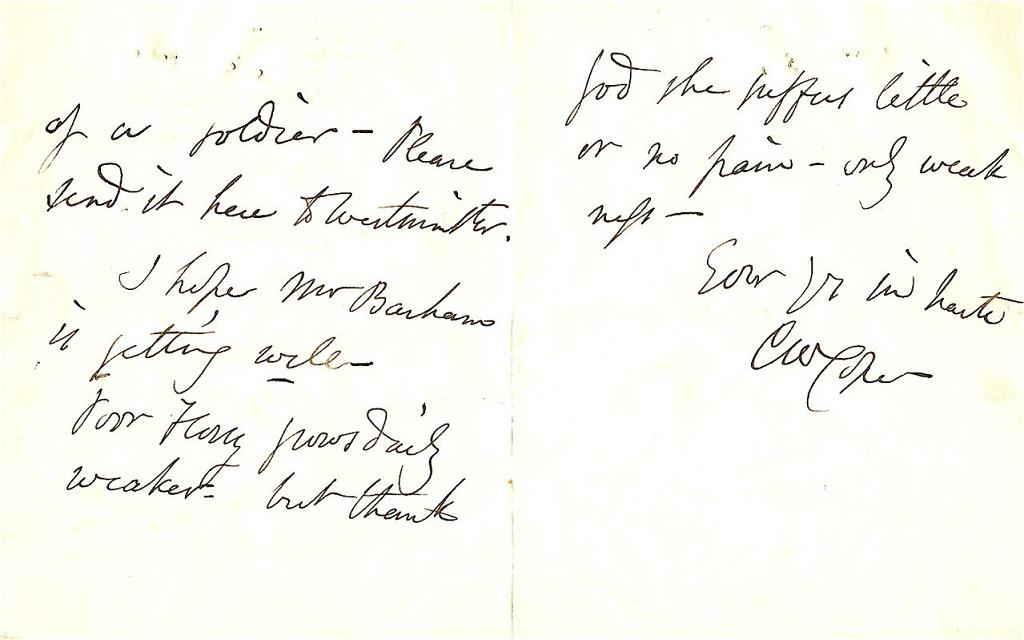 of a soldier – Please
send it here to Westminster.
I hope Mr Barham
is getting well –
Poor Florry grows daily
weaker – but thank
God she suffers little
or no pain – only weak
ness –
Ever yr in haste
CW Cope